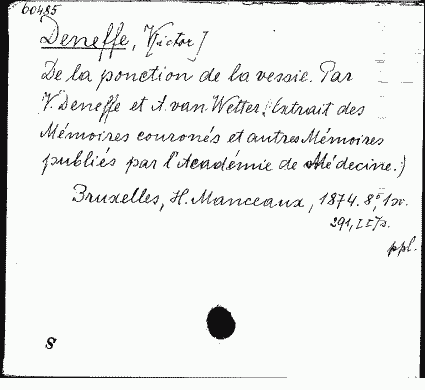 60485
Deneffe, V[ictor]
De la ponction de la vessie. Par
V. Deneffe et A. van Wetter. (Extrait des
Mémoires couronés et autres Mémoires
publiés par l'Académie de Médecine.)
Bruxelles, H. Manceaux, 1874. 8°, 1 vol.
291, II p.
ppl.
S